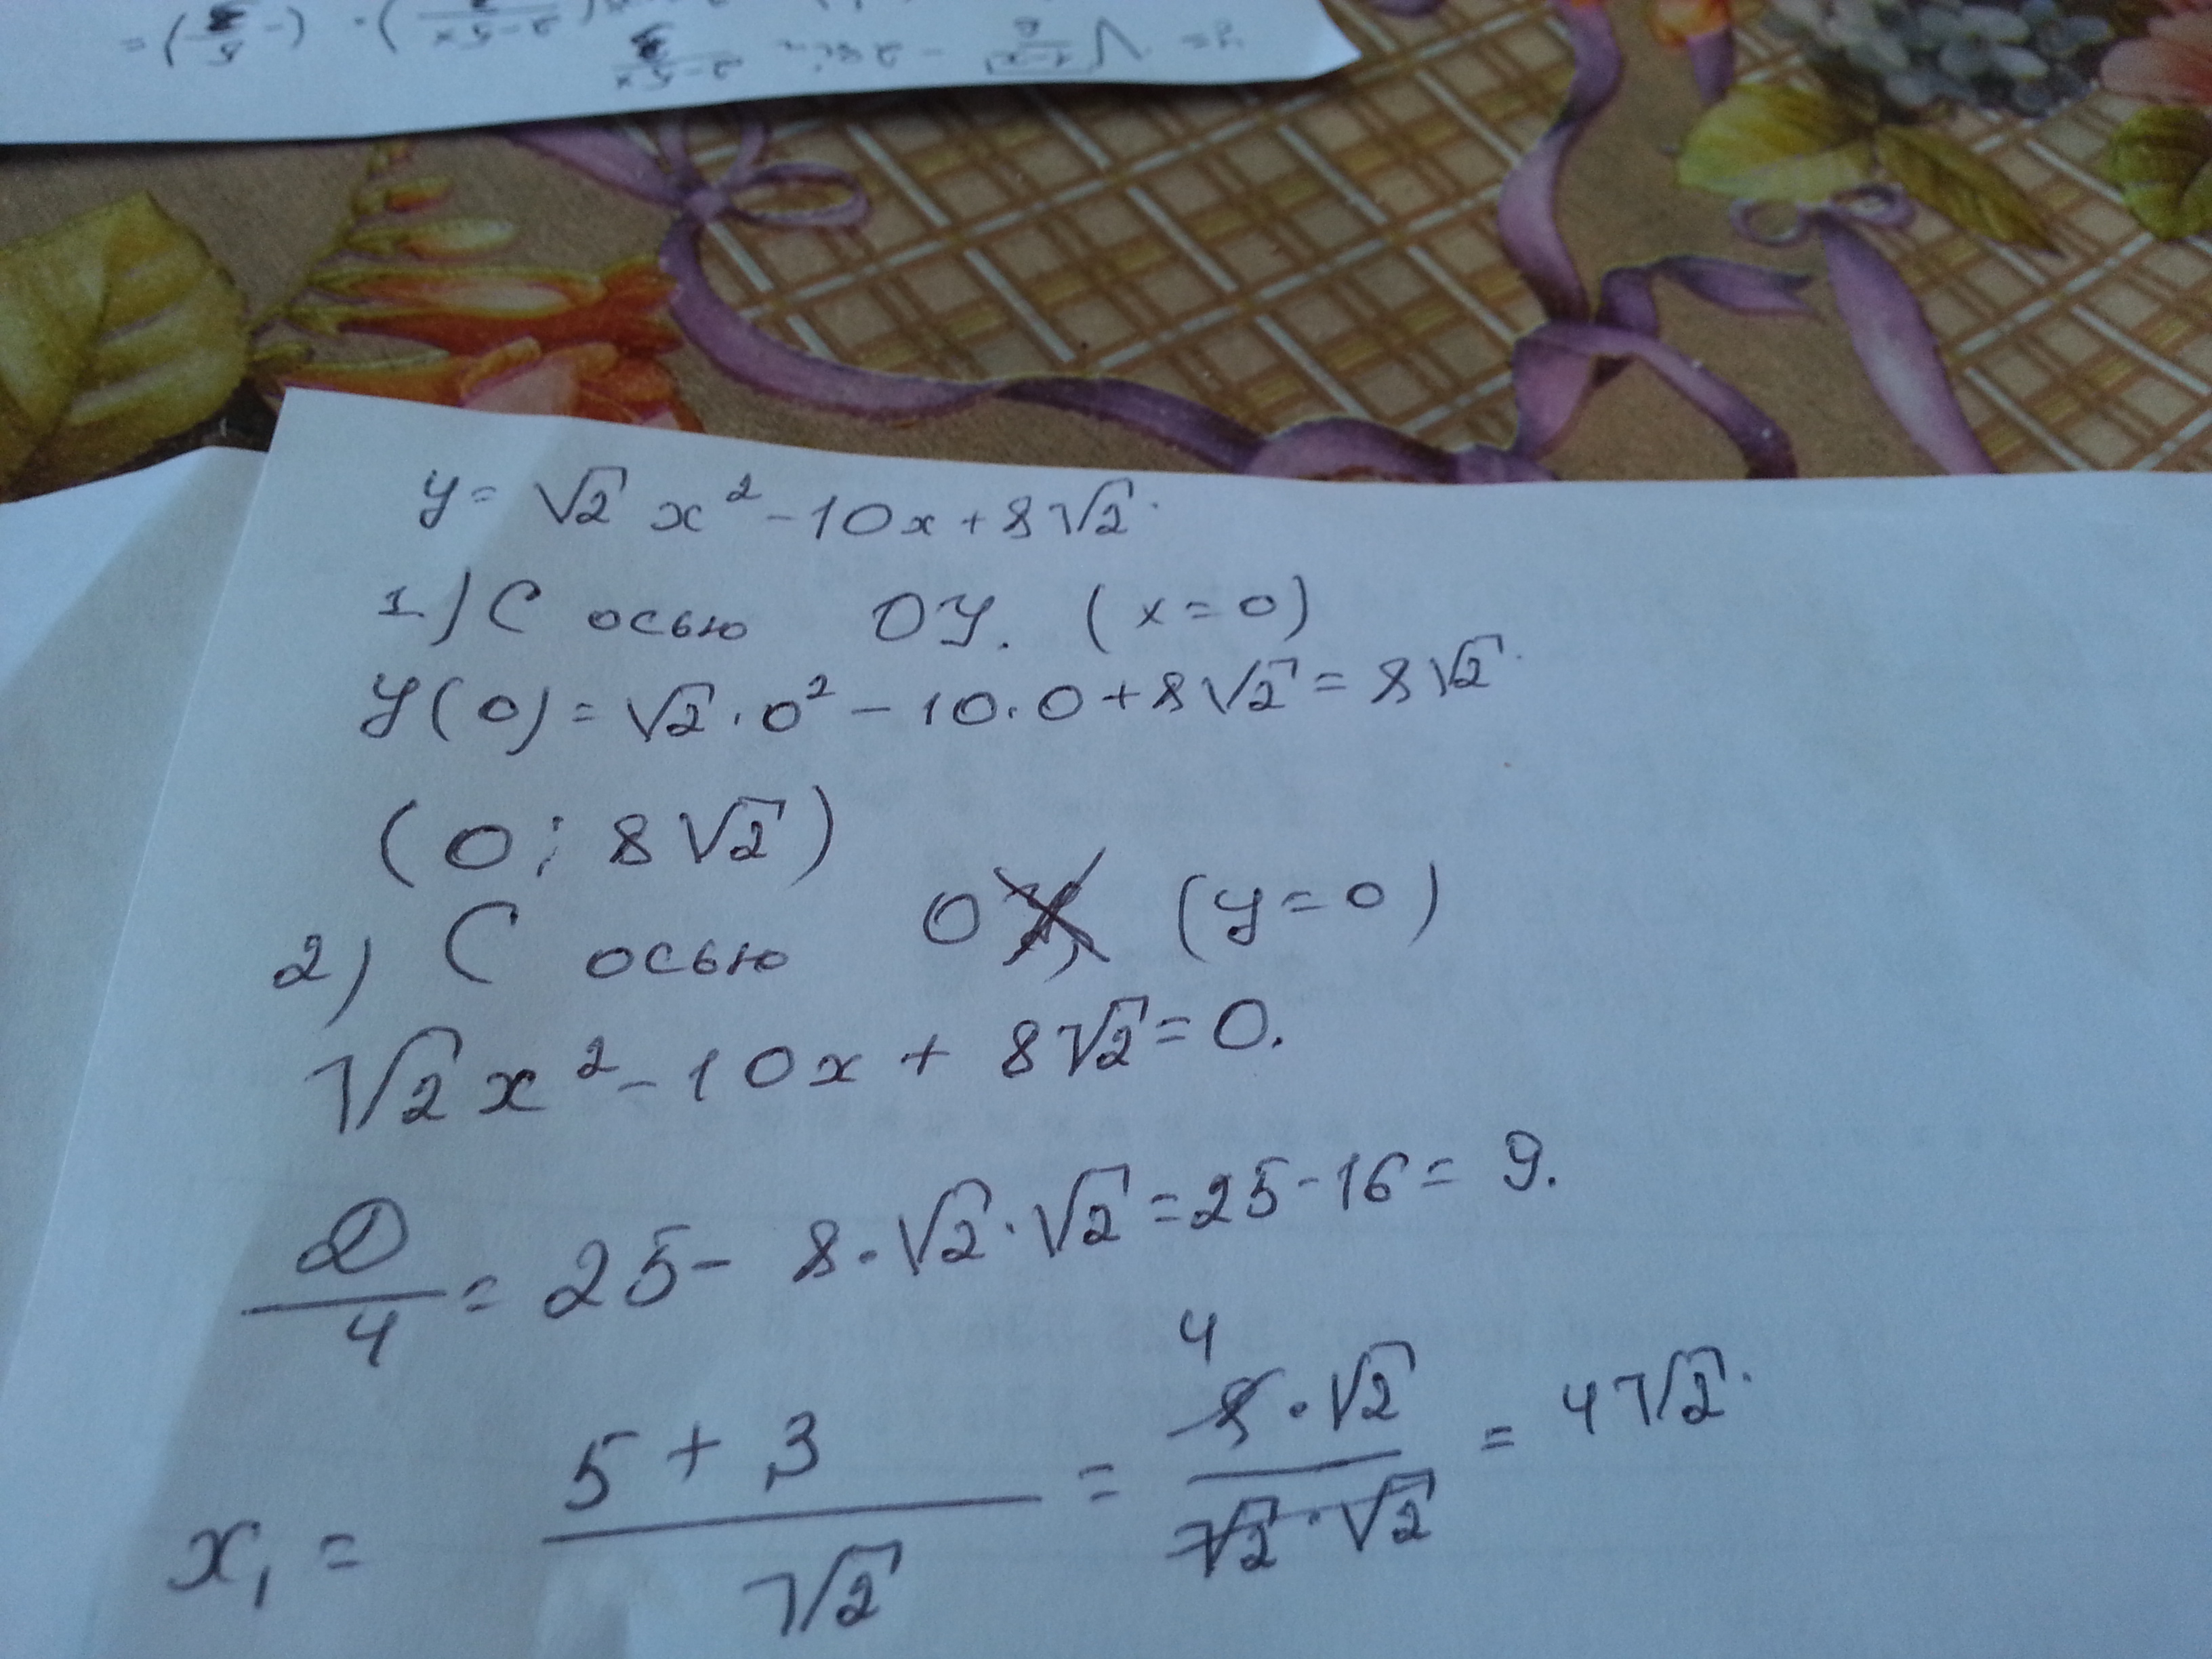 y = √2 x² - 10x + 8√2.
1) С осью OY. (x = 0)
y(0) = √2 · 0² - 10 · 0 + 8√2 = 8√2.
(0; 8√2)
2) С осью OX, (y = 0)
√2 x² - 10x + 8√2 = 0.
D/4 = 25 - 8 · √2 · √2 = 25 - 16 = 9.
x₁ = (5 + 3)/√2 = (8 · √2)/(√2 · √2) = 4√2.
4